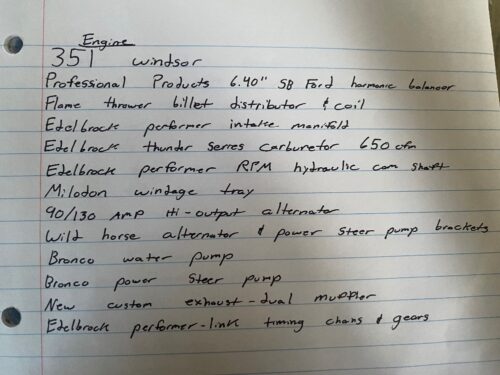 Engine
351 windsor
Professional Products 6.40" SB Ford harmonic balancer
Flame thrower billet distributor & coil
Edelbrock performer intake manifold
Edelbrock thunder serres carburetor 650 cfm
Edelbrock performer RPM hydraulic cam shaft
Milodon windage tray
90/130 AMP Hi-output alternator
Wild horse alternator & power steer pump brackets
Bronco water pump
Bronco power steer pump
New custom exhaust-dual muffler
Edelbrock performer-link timing chans & gears